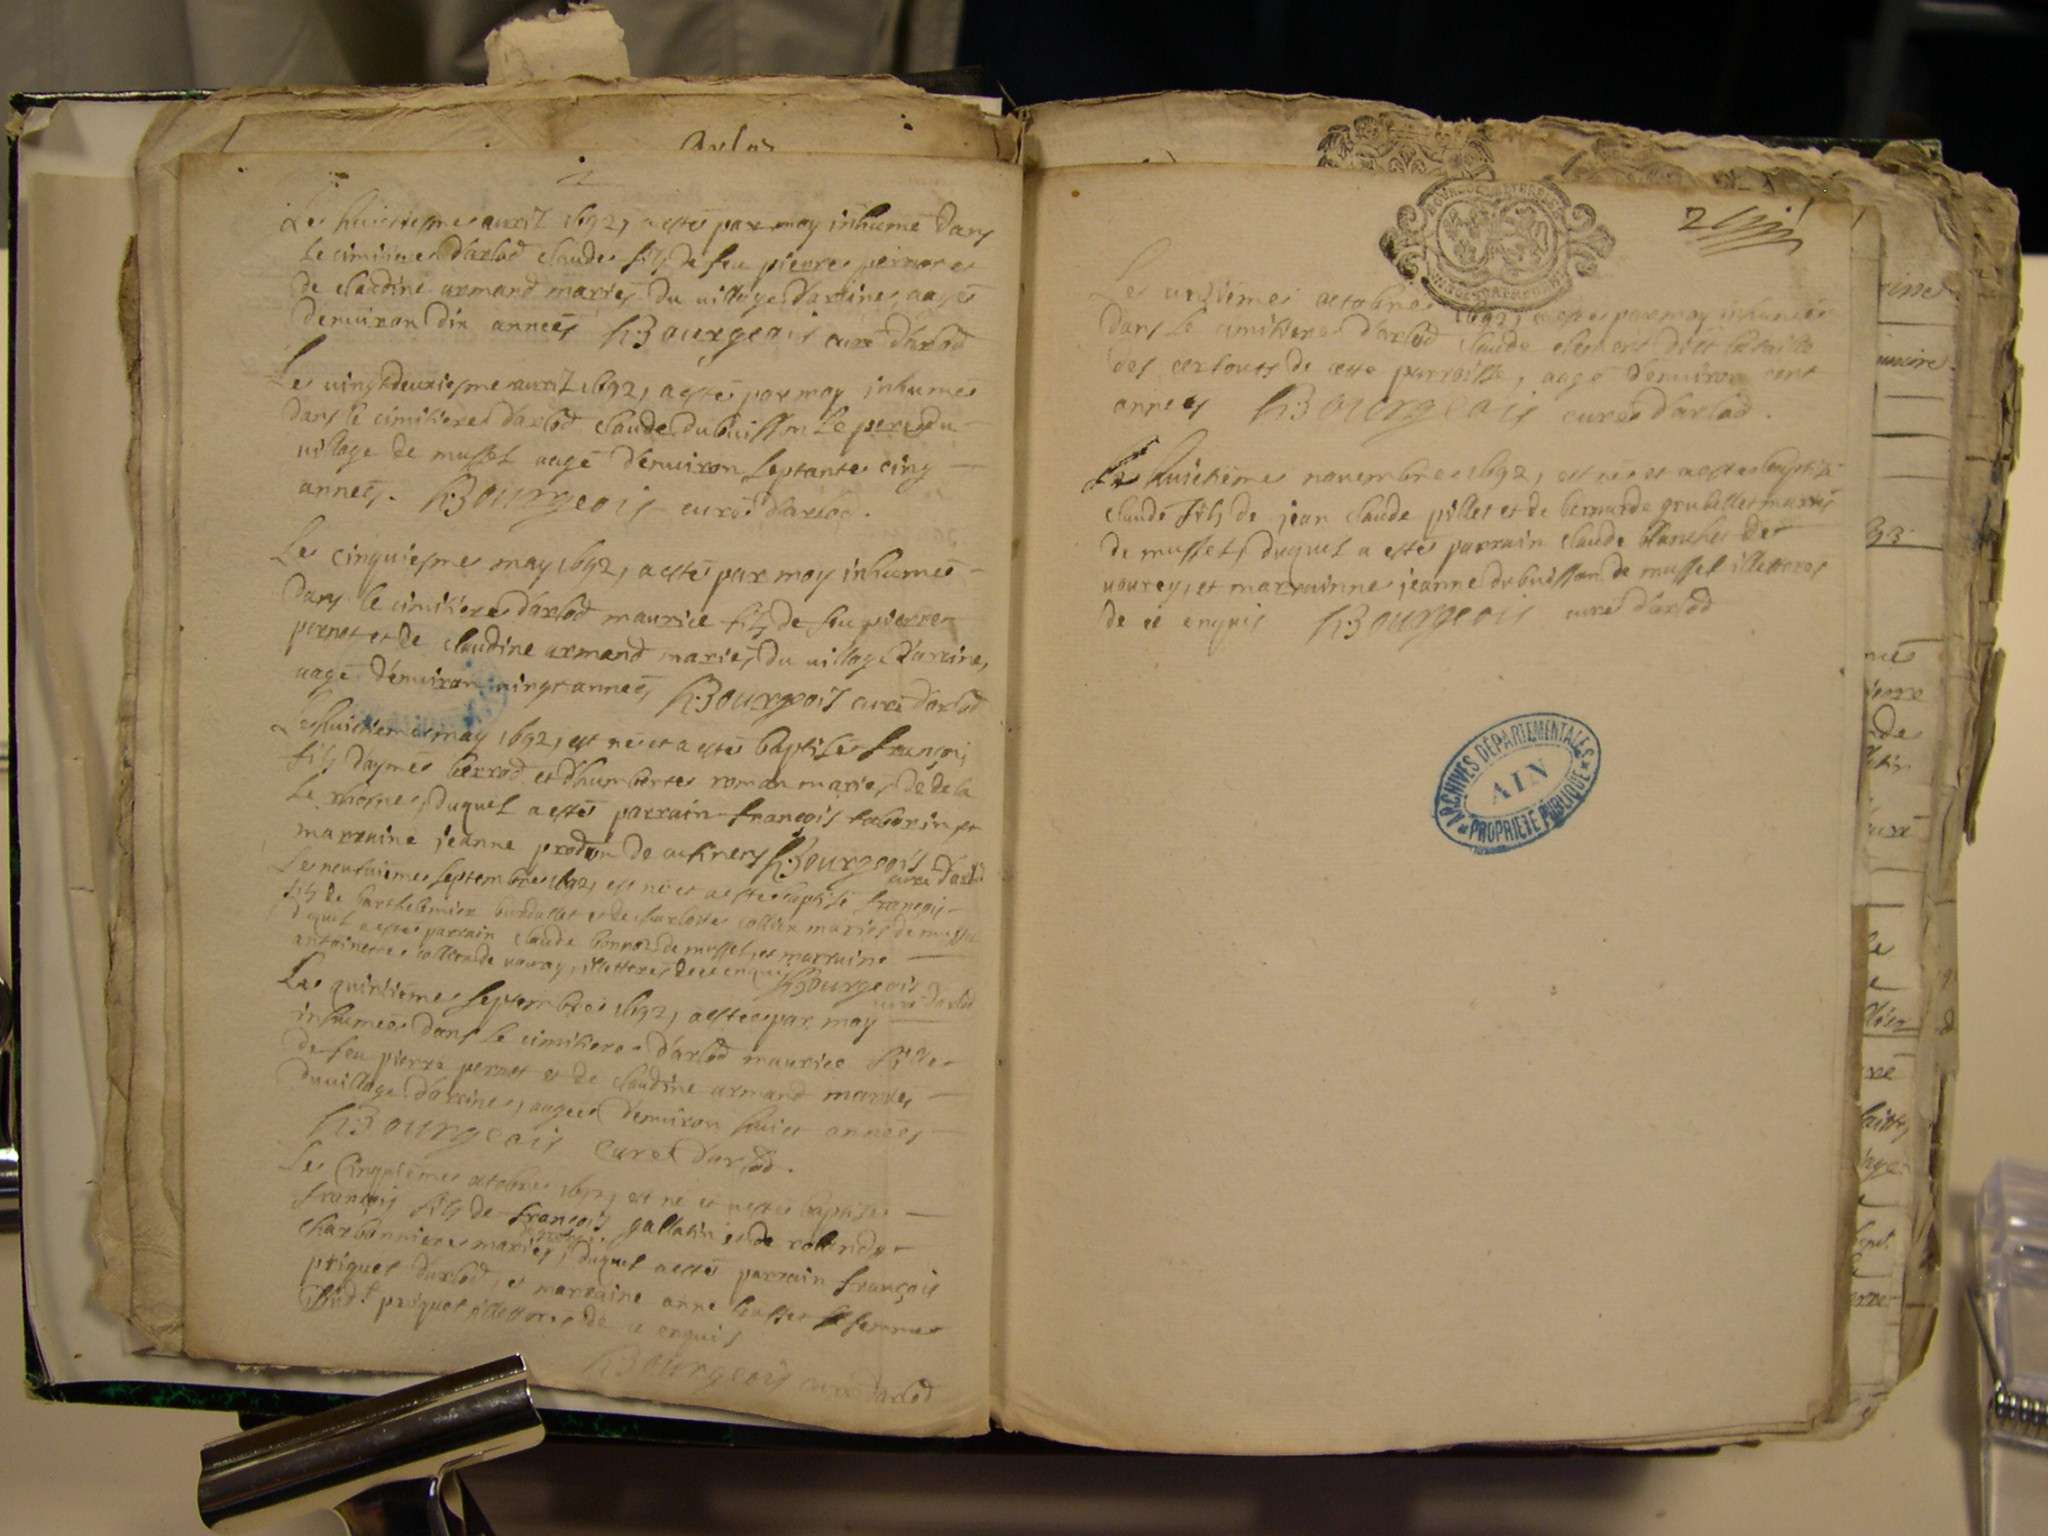 Arlod
Le huictiesme avril 1692, a esté par moy inhumé dans
le cimitiere d'arlod claude filz de feu pierre pernet et
de claudine armand mariés du village d'arcine, aagé
d'environ dix années HBourgeois curé d'arlod
Le vingtdeuxiesme avril 1692, a esté par moy inhumé
dans le cimitiere d'arlod claude dubuisson le pere du
village de mussel aagé d'environ septante cinq
années. HBourgeois curé d'arlod.
Le cinquiesme may 1692, a esté par moy inhumé
dans le cimitiere d'arlod maurice filz de feu pierre
pernet et de claudine armand mariés du village d'arcine,
aagé d'environ vingt années HBourgeois curé d'arlod
Le huictieme may 1692, est né et a esté baptisé françois
filz d'ayme berrod et d'humberte roman mariés de dela
le rhosne, duquel a esté parrain françois taborin et
marraine jeanne prodon de HBourgeois
curé d'arlod
Le neufvieme septembre 1692, est né et a esté baptisé françois
filz de barthelemier burdallet et de charlotte collin mariés de mussel
duquel a esté parrain claude bonnoz de mussel, et marraine
antoinette de vouvray, illetteres de ce enquis HBourgeois
curé d'arlod
Le quinsieme septembre 1692, a esté par moy
inhumée dans le cimitiere d'arlod maurice fille
de feu pierre pernet et de claudine armand mariés
du village d'arcine, aagée d'environ huict années
HBourgeois curé d'arlod.
Le cinquieme octobre 1692, est né et a esté baptisé
françois filz de françois gallatin et de rolende
charbonniere mariés, duquel a esté parrain françois
priquet d'arlod, et marraine anne femme
dud.t priquet illetteres de ce enquis
HBourgeois curé d'arlod
2
Le unzieme octobre 1692, a esté par moy inhumé
dans le cimitiere d'arlod claude clement dict
des de cette parroisse, aagé d'environ cent
années HBourgeois curé d'arlod.
Le huictieme novembre 1692, est né et a esté baptisé
claude filz de jean claude pillet et de bernarde grubellet mariés
de mussel, duquel a esté parrain claude blanchet de
vouvray, et marrainne jeanne dubuisson de mussel illetteres
de ce enquis HBourgeois curé d'arlod
ARCHIVES DÉPARTEMENTALES
AIN
PROPRIÉTÉ PUBLIQUE